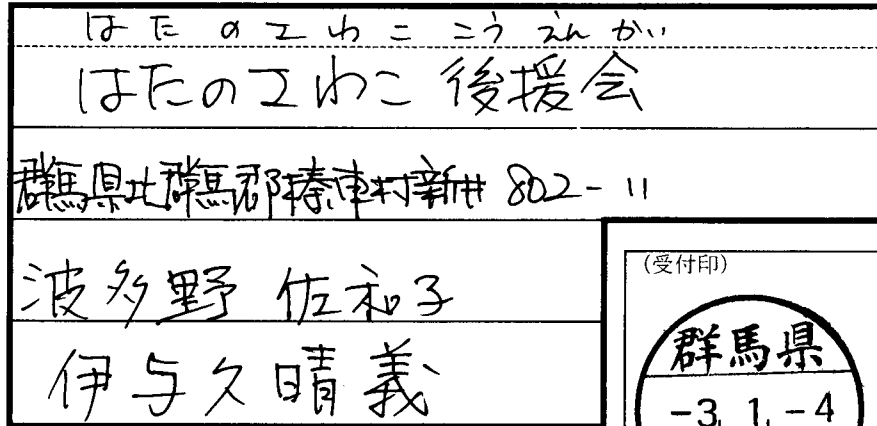 はたのさわこ こうえんかい
はたのさわこ 後援会
群馬県北群馬郡榛東村新井 802-11
波多野 佐和子
伊与久晴義
(受付印)
群馬県
-3.1.-4